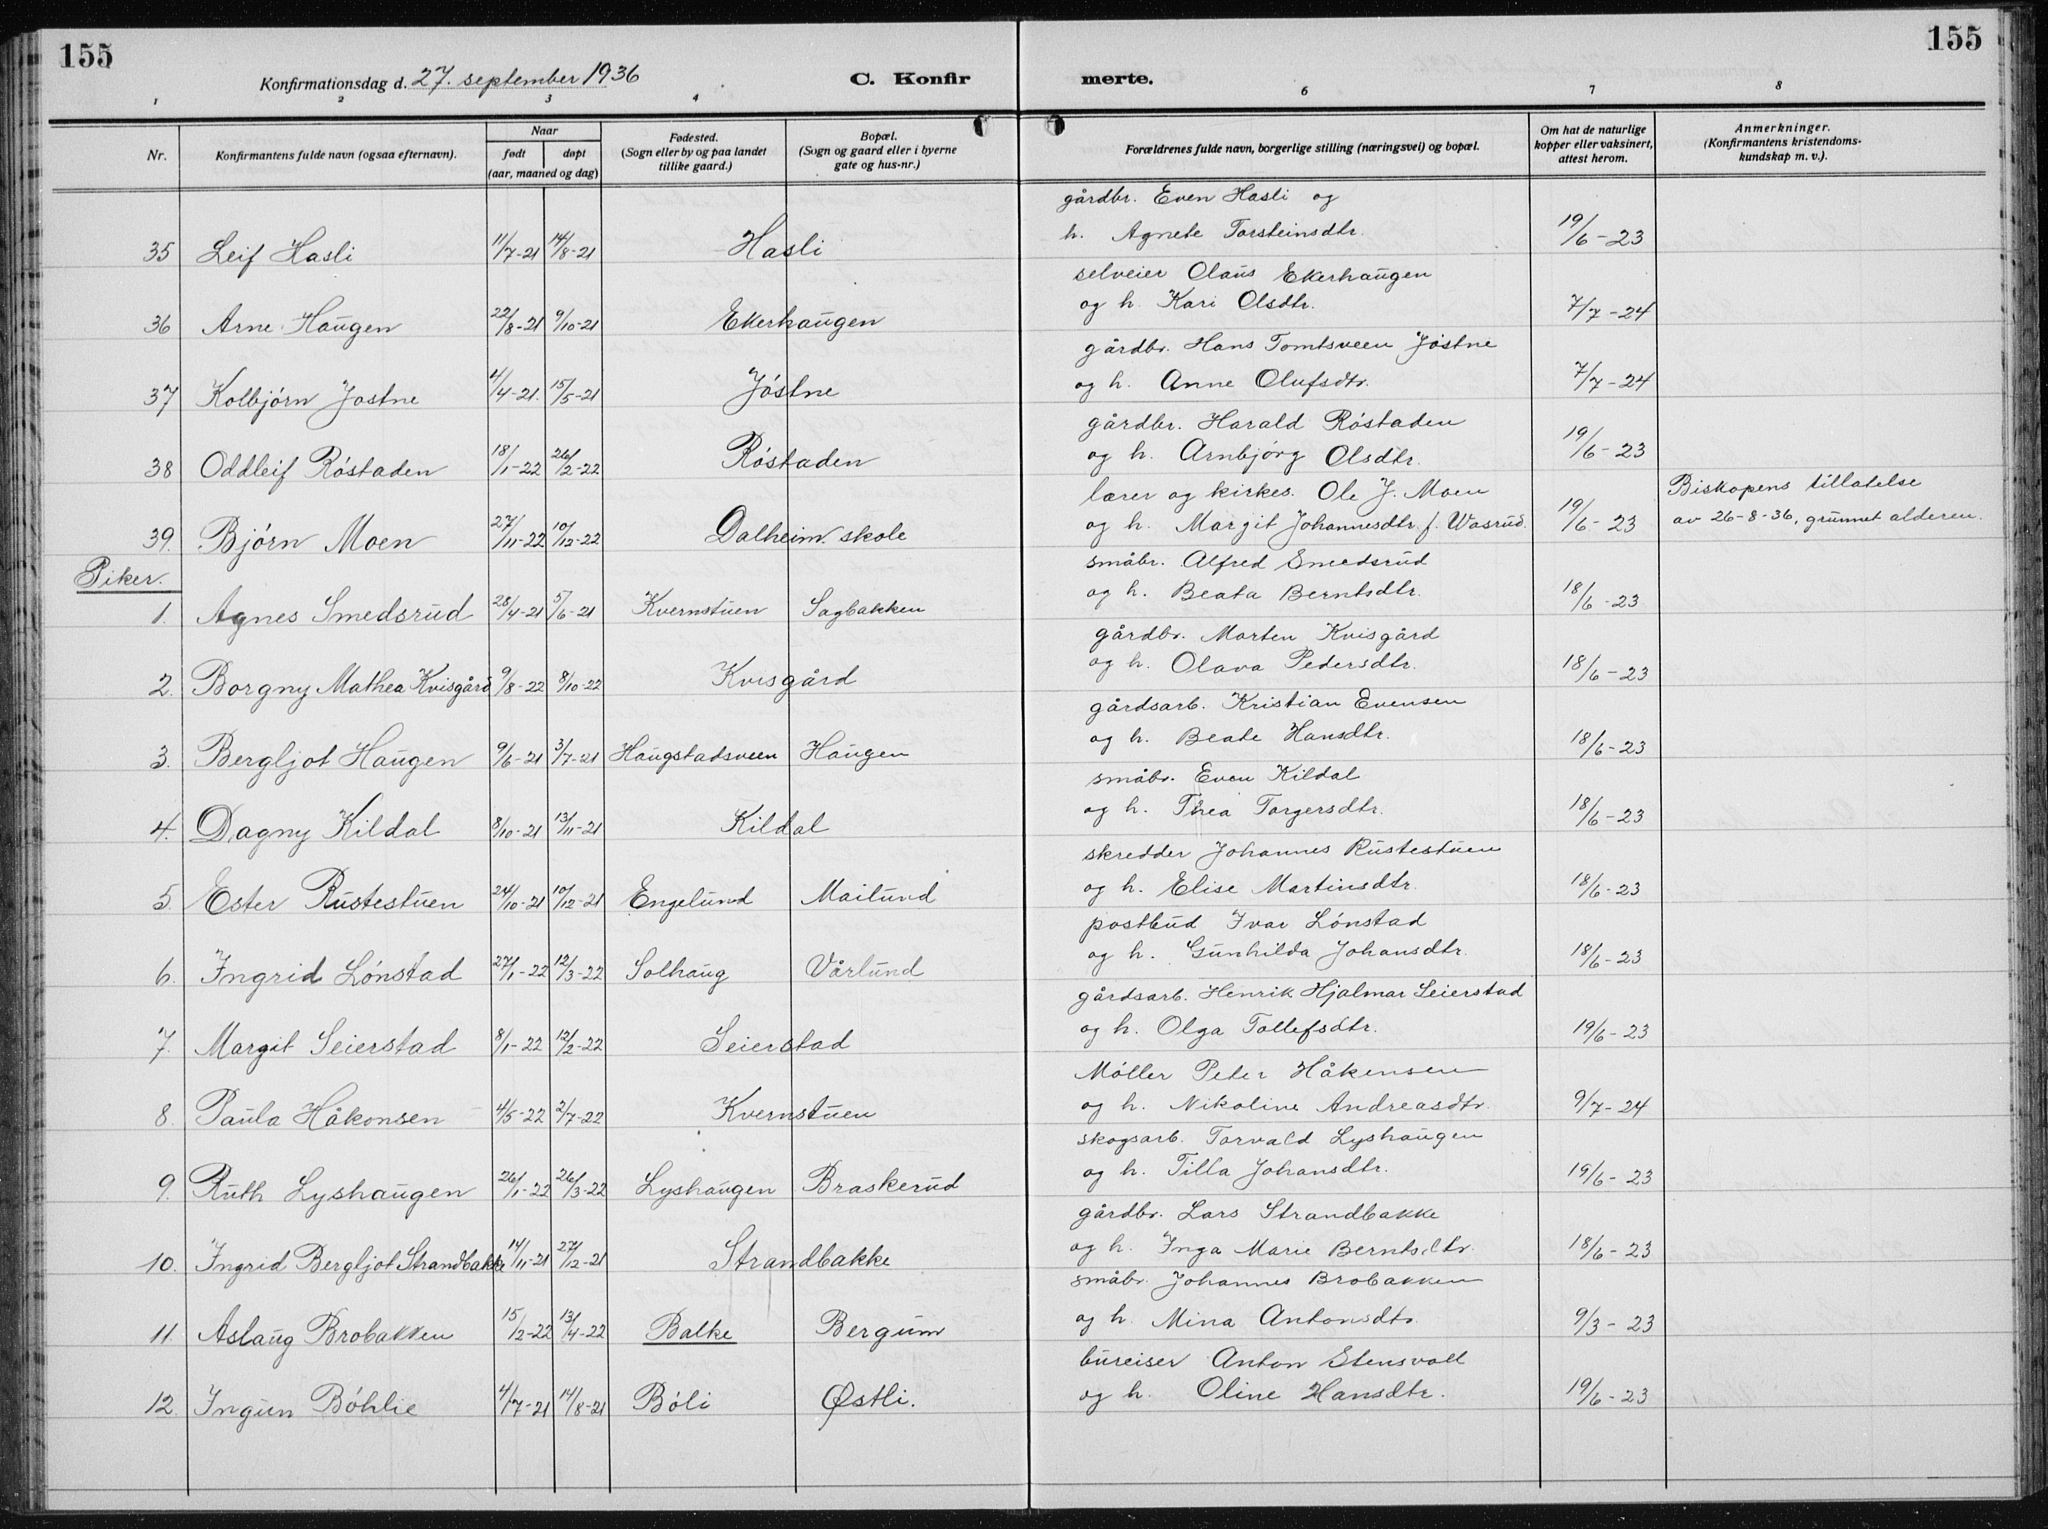 155
155
Konfirmationsdag d. 27. september 1936
C. Konfirmerte.
1 2 3 4 6 7 8
Nr. Konfirmantens fulde navn (ogsaa efternavn). Naar født døpt (aar, maaned og dag) Fødested. (Sogn eller by og paa landet tillike gaard.) Bopæl. (Sogn og gaard eller i byerne gate og hus-nr.) Forældrenes fulde navn, borgerlige stilling (næringsvei) og bopæl. Om hat de naturlige kopper eller vaksinert, attest herom. Anmerkninger. (Konfirmantens kristendomskundskap m. v.).
gårdbr. Even Hasli og
35 Leif Hasli 11/7-21 14/8-21 Hasli h. Agnete Torsteinsdtr. 19/6-23
selveier Olaus Ekerhaugen
36 Arne Haugen 22/8-21 9/10-21 Ekerhaugen og h. Kari Olsdtr. 7/7-24
gårdbr. Hans Tomtsveen Jøstne
37 Kolbjørn Jøstne 4/4-21. 15/5-21 Jøstne og h. Anne Olufsdtr. 7/7-24
gårdbr. Harald Røstaden
38 Oddleif Røstaden 18/1-22 26/2-22 Røstaden og h. Arnbjørg Olsdtr. 19/6-23
lærer og kirkes. Ole J. Moen Biskopens tillatelse
39. Bjørn Moen 27/11-22 10/12-22 Dalheim skole og h. Margit Johannesdtr. f. Wasrud. 19/6-23 av 26-8-36, grunnet alderen.
Piker.
småbr. Alfred Smedsrud
1. Agnes Smedsrud 28/4-21 5/6-21 Kvernstuen Sagbakken og h. Beata Berntsdtr. 18/6-23
gårdbr. Morten Kvisgård
2. Borgny Mathea Kvisgård 9/8-22 8/10-22 Kvisgård og h. Olava Pedersdtr. 18/6-23
gårdsarb. Kristian Evensen
3. Bergljot Haugen 9/6-21 3/7-21 Haugstadsveen Haugen og h. Beate Hansdtr. 18/6-23
småbr. Even Kildal
4. Dagny Kildal 8/10-21 13/11-21 Kildal og h. Thea Torgersdtr. 18/6-23
skredder Johannes Rustestuen
5. Ester Rustestuen 24/10-21 10/12-21 Engelund Mailund og h. Elise Martinsdtr. 18/6-23
postbud Ivar Lønstad
6. Ingrid Lønstad 27/1-22 12/3-22 Solhaug Vårlund og h. Gunhilda Johansdtr. 18/6-23
gårdsarb. Henrik Hjalmar Seierstad
7. Margit Seierstad 8/1-22 12/2-22 Seierstad og h. Olga Tollefsdtr. 19/6-23
Møller Peter Håkensen
8. Paula Håkonsen 4/5-22 2/7-22 Kvernstuen og h. Nikoline Andreasdtr. 9/7-24
skogsarb. Torvald Lyshaugen
9. Ruth Lyshaugen 26/1-22 26/3-22 Lyshaugen Braskerud og h. Tilla Johansdtr. 19/6-23
gårdbr. Lars Strandbakke
10. Ingrid Bergljot Strandbakke 14/11-21 27/12-21 Strandbakke og h. Inga Marie Berntsdtr. 18/6-23
småbr. Johannes Brobakken
11. Aslaug Brobakken 15/2-22 13/4-22 Balke Bergum og h. Mina Antonsdtr. 9/3-23
bureiser Anton Stensvoll
12. Ingun Bøhlie 4/7-21 14/8-21 Bøli Østli. og h. Oline Hansdtr. 19/6-23